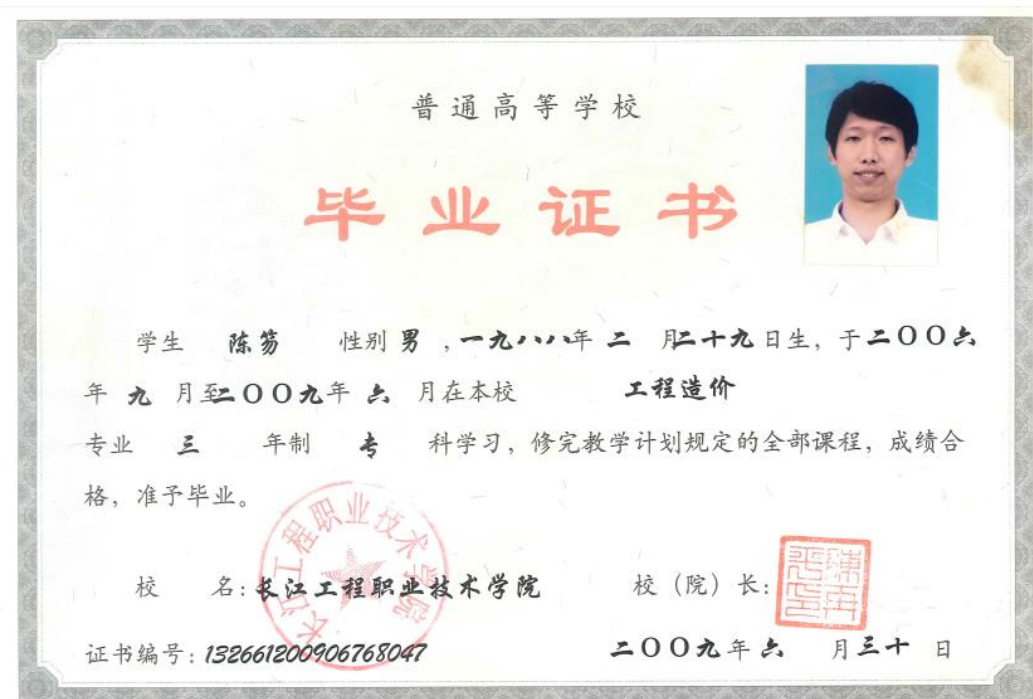 普通高等学校
毕业证书
学生 陈笏 性别 男 ,一九八八年 二 月二十九日生,于二〇〇六
年 九 月至二〇〇九年 六 月在本校 工程造价
专业 三 年制 专 科学习,修完教学计划规定的全部课程,成绩合
格,准予毕业。
长江工程职业技术学院
校 名:长江工程职业技术学院 校(院)长:
证书编号:132661200906768047 二〇〇九年 六 月三十 日